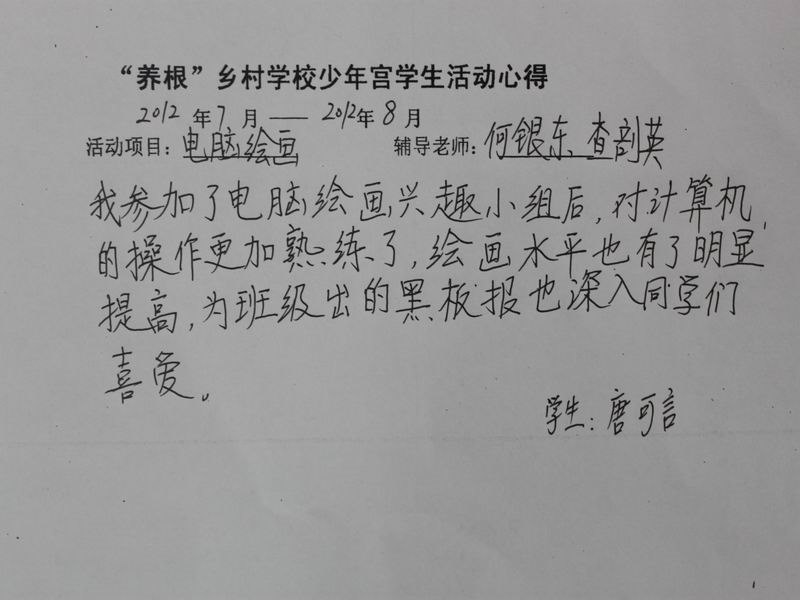 “养根”乡村学校少年宫学生活动心得
2012 年 7 月 —— 2012 年 8 月
活动项目：电脑绘画 辅导老师：何银东 查剖英
我参加了电脑绘画兴趣小组后，对计算机
的操作更加熟练了，绘画水平也有了明显
提高，为班级出的黑板报也深入同学们
喜爱。
学生：唐可言